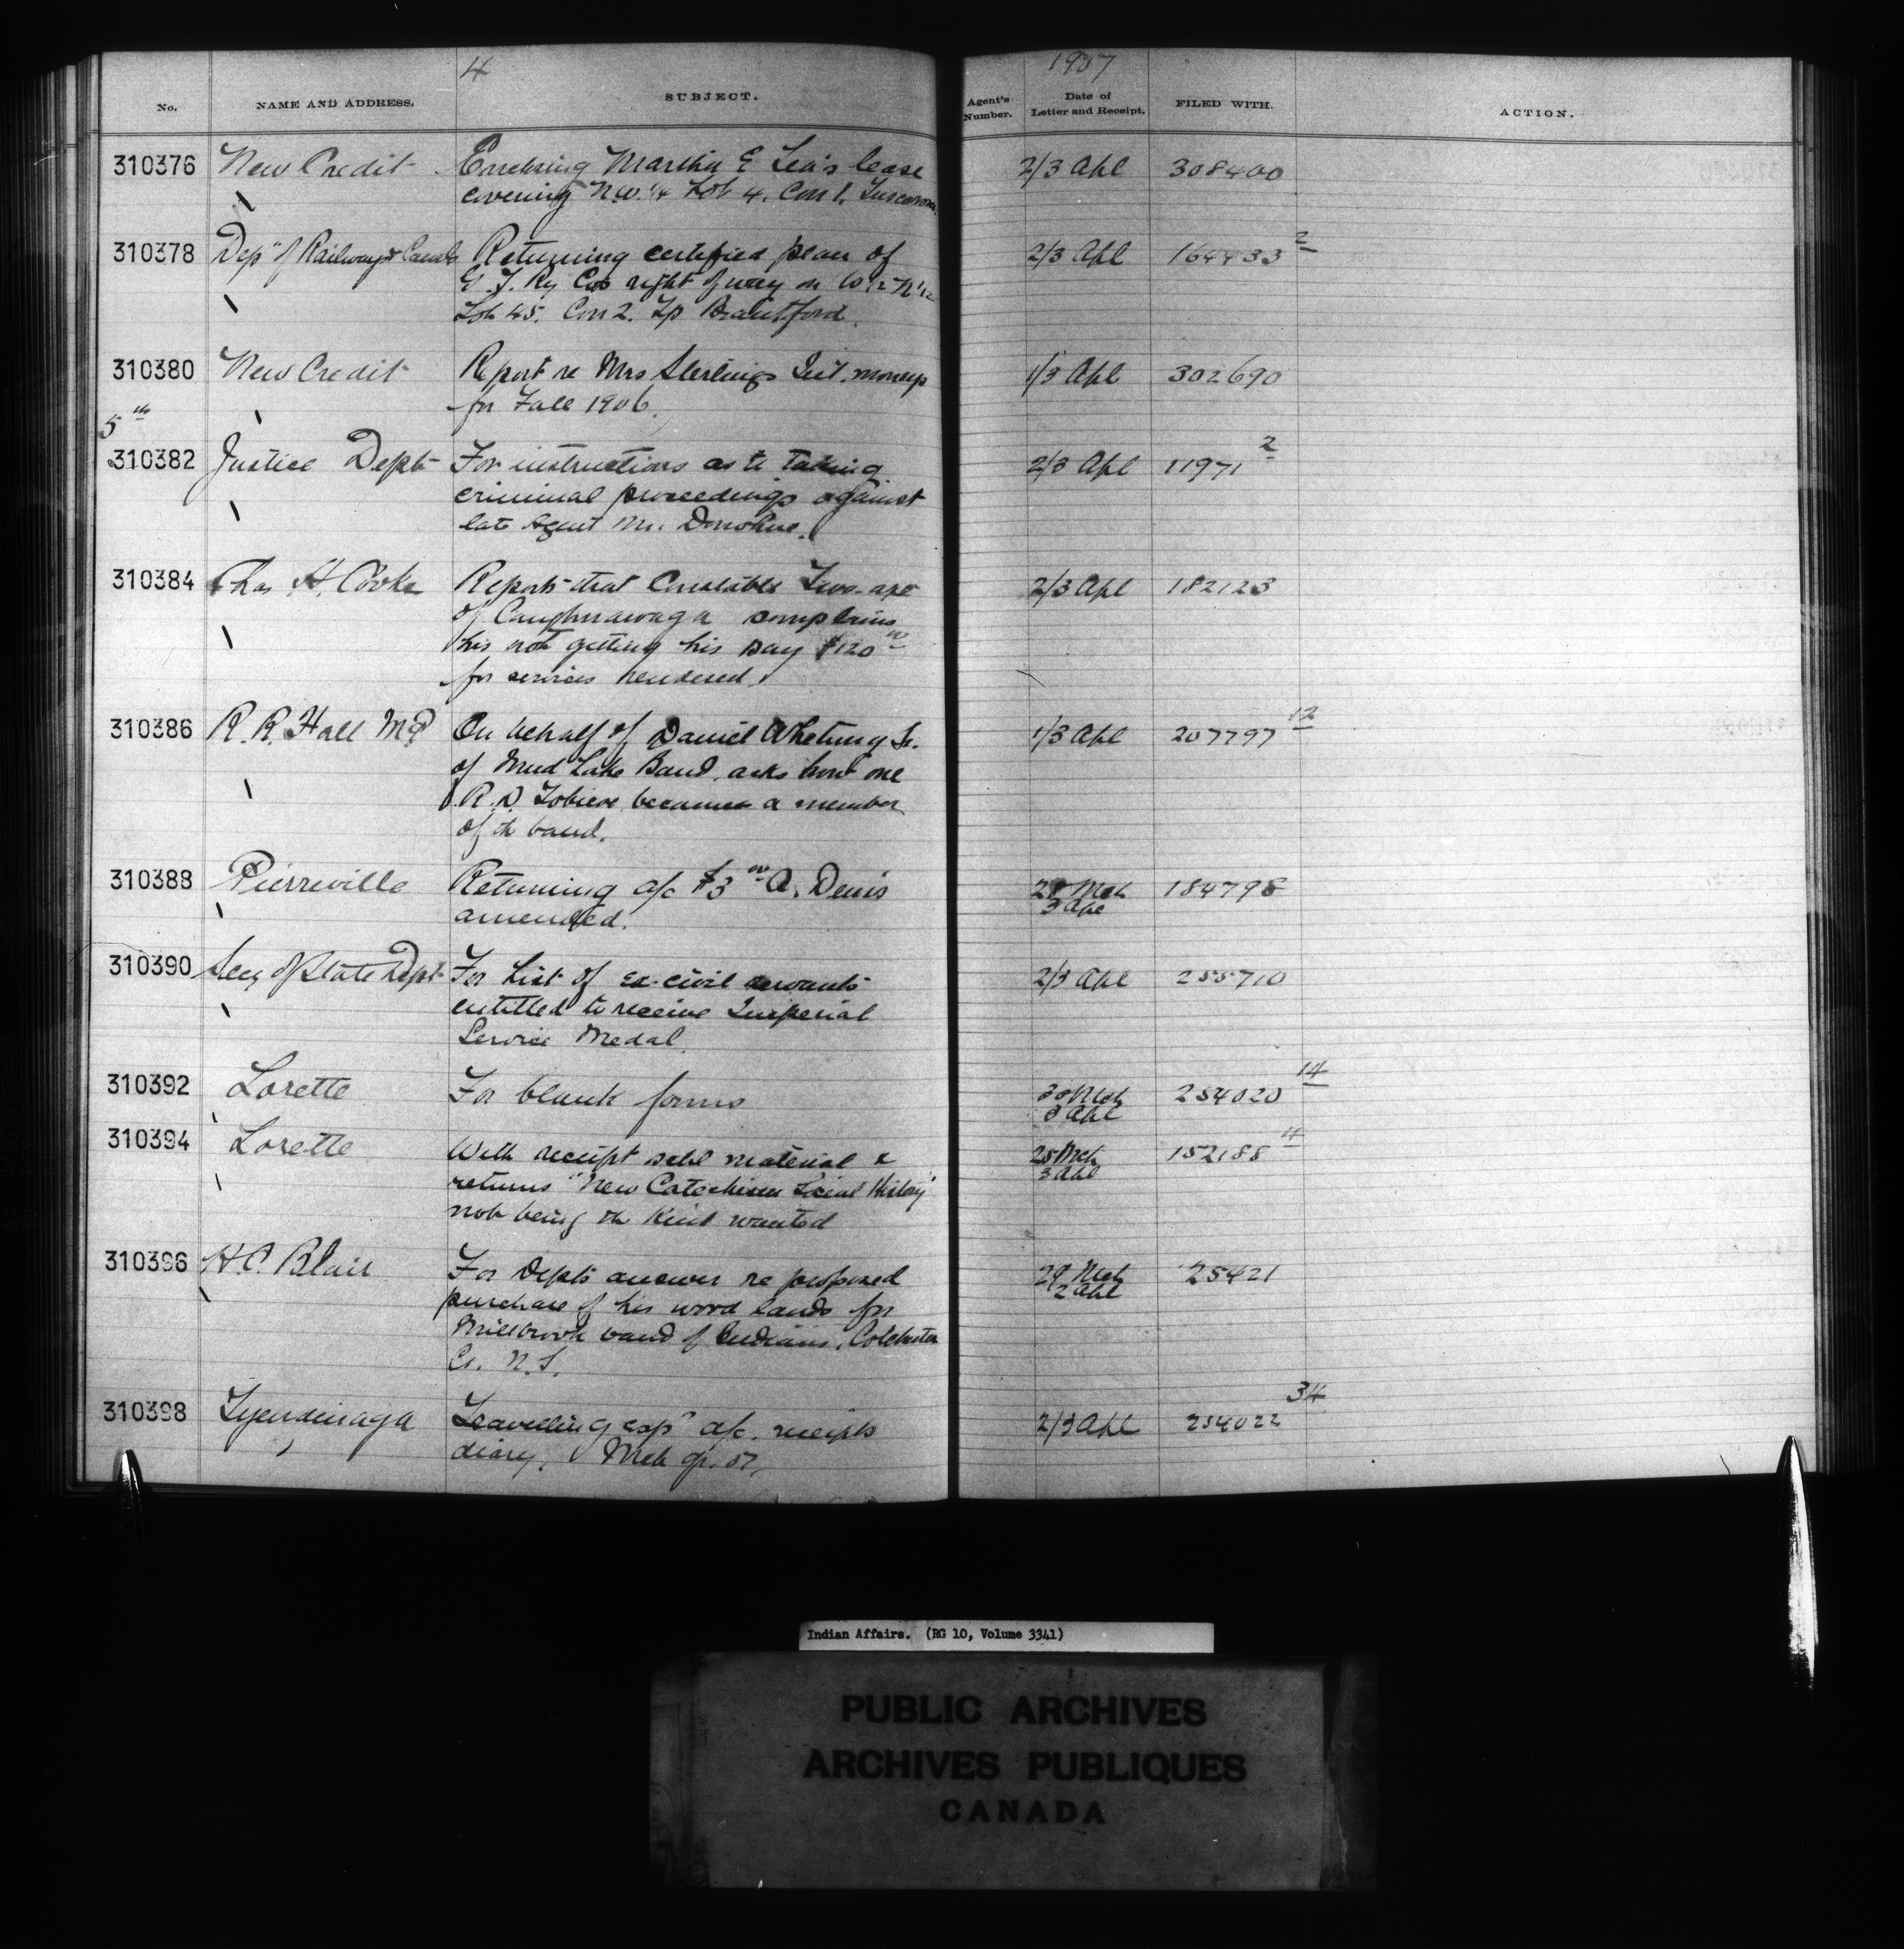 4
1907
No.
NAME AND ADDRESS.
SUBJECT.
Agent's Number.
Date of Letter and Receipt.
FILED WITH.
ACTION.
310376 New Credit Enclosing Martha E Lea's lease 2/3 Apl 308400
covering N.W. 1/4 Lot 4. Con 1. Tuscarora
310378 Dep't of Railways & Canals Returning certified plan of 2/3 Apl 164433 2
G. T. Ry Co's right of way on W 1/2 N 1/2
Lot 45. Con 2. Tp Brantford.
310380 New Credit Report re Mrs Sterlings Int. moneys 1/3 Apl 302690
for Fall 1906.
5th
310382 Justice Dept For instructions as to taking 2/3 Apl 11971 2
criminal proceedings against
late Agent Mr. Donohue.
310384 Chas H. Cooke Reports that Constable Two-axe 2/3 Apl 182123
of Caughnawaga complains
his not getting his pay $120 00
for services rendered.
310386 R. R. Hall MP On behalf of Daniel Whetung Sr. 1/3 Apl 207797 12
of Mud Lake Band, asks how one
R. D. became a member
of th band.
310388 Pierreville Returning a/c $3 00 A. Denis 28 Mch 184798
amended. 3 Apl
310390 Secy of State Dept For List of ex-civil servants 2/3 Apl 255710
entitled to receive Imperial
Service Medal
310392 Lorette For blank forms 30 Mch 254020 14
3 Apl
310394 Lorette With receipt schl material & 28 Mch 152188 4
returns "New Catechism Social History" 3 Apl
not being the kind wanted
310396 H. C. Blair For Depts answer re proposed 29 Mch 25421
purchase of his wood lands for 2 Apl
Millbrook band of Indians, Colchester
Co. N.S.
310398 Tyendinaga Travelling exps a/c. receipts 2/3 Apl 254022 34
diary, Mch qr. 07.
Indian Affairs. (RG 10, Volume 3341)
PUBLIC ARCHIVES
ARCHIVES PUBLIQUES
CANADA